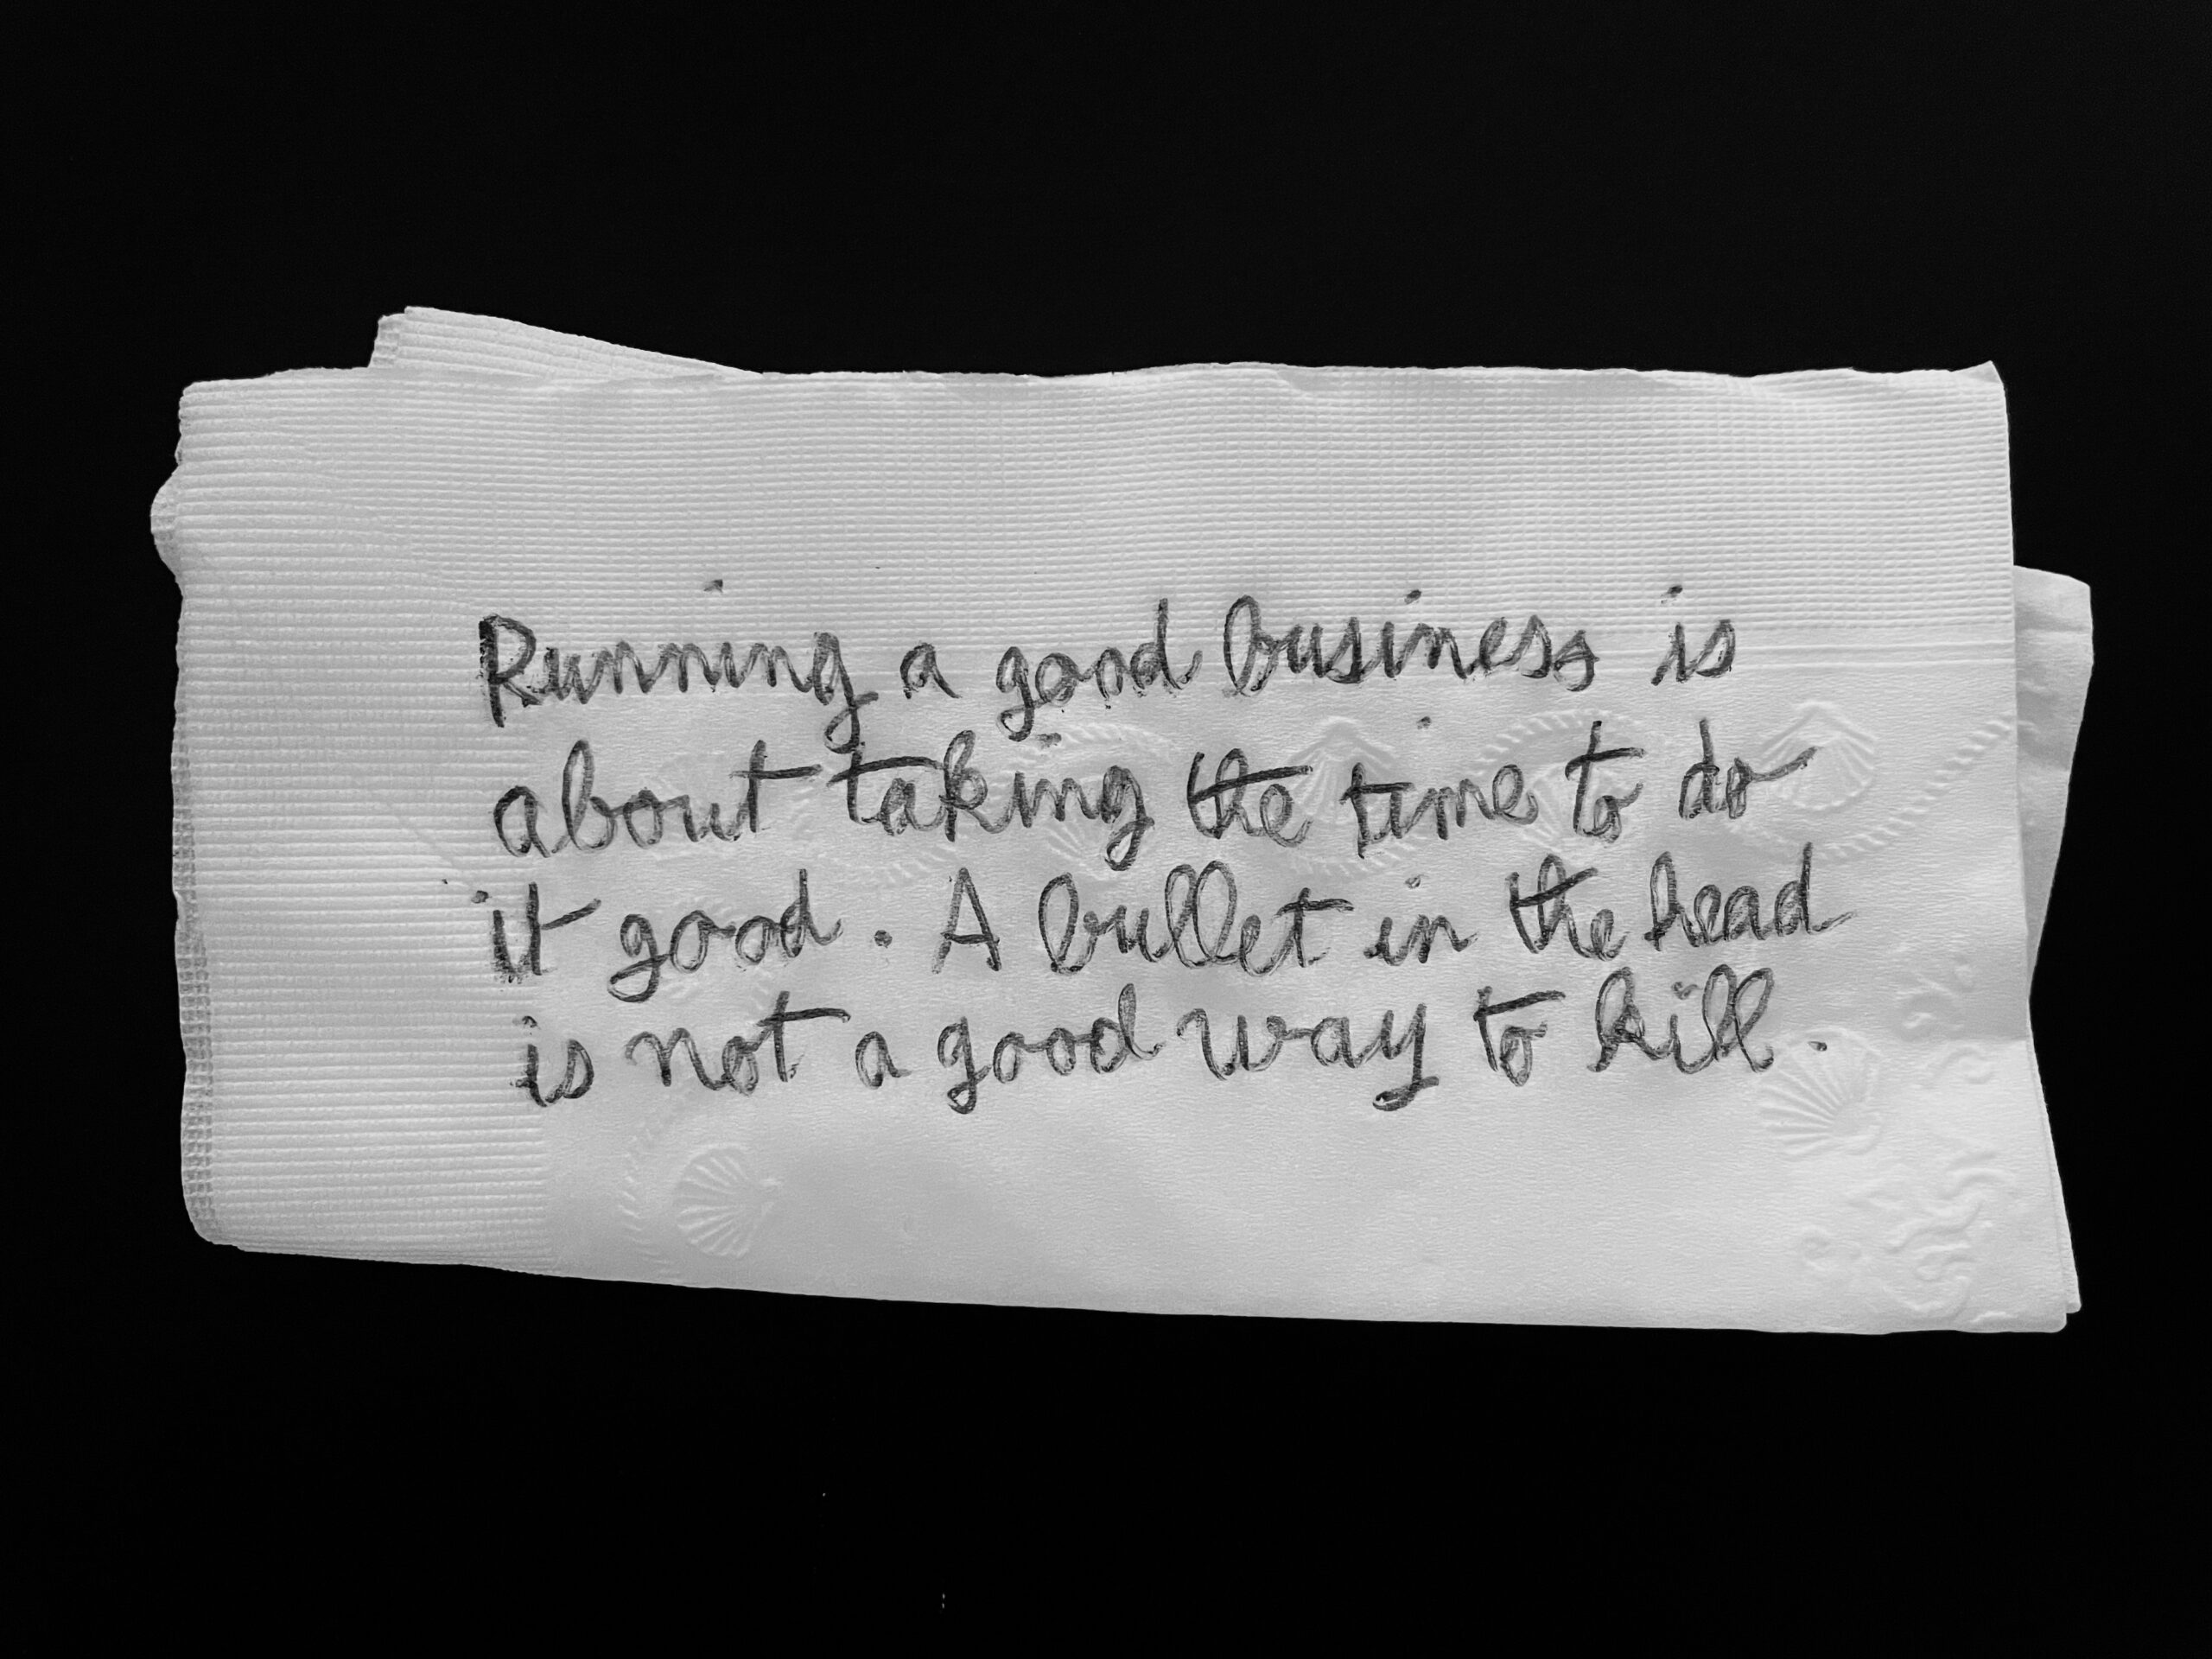 Running a good business is
about taking the time to do
it good. A bullet in the head
is not a good way to kill.